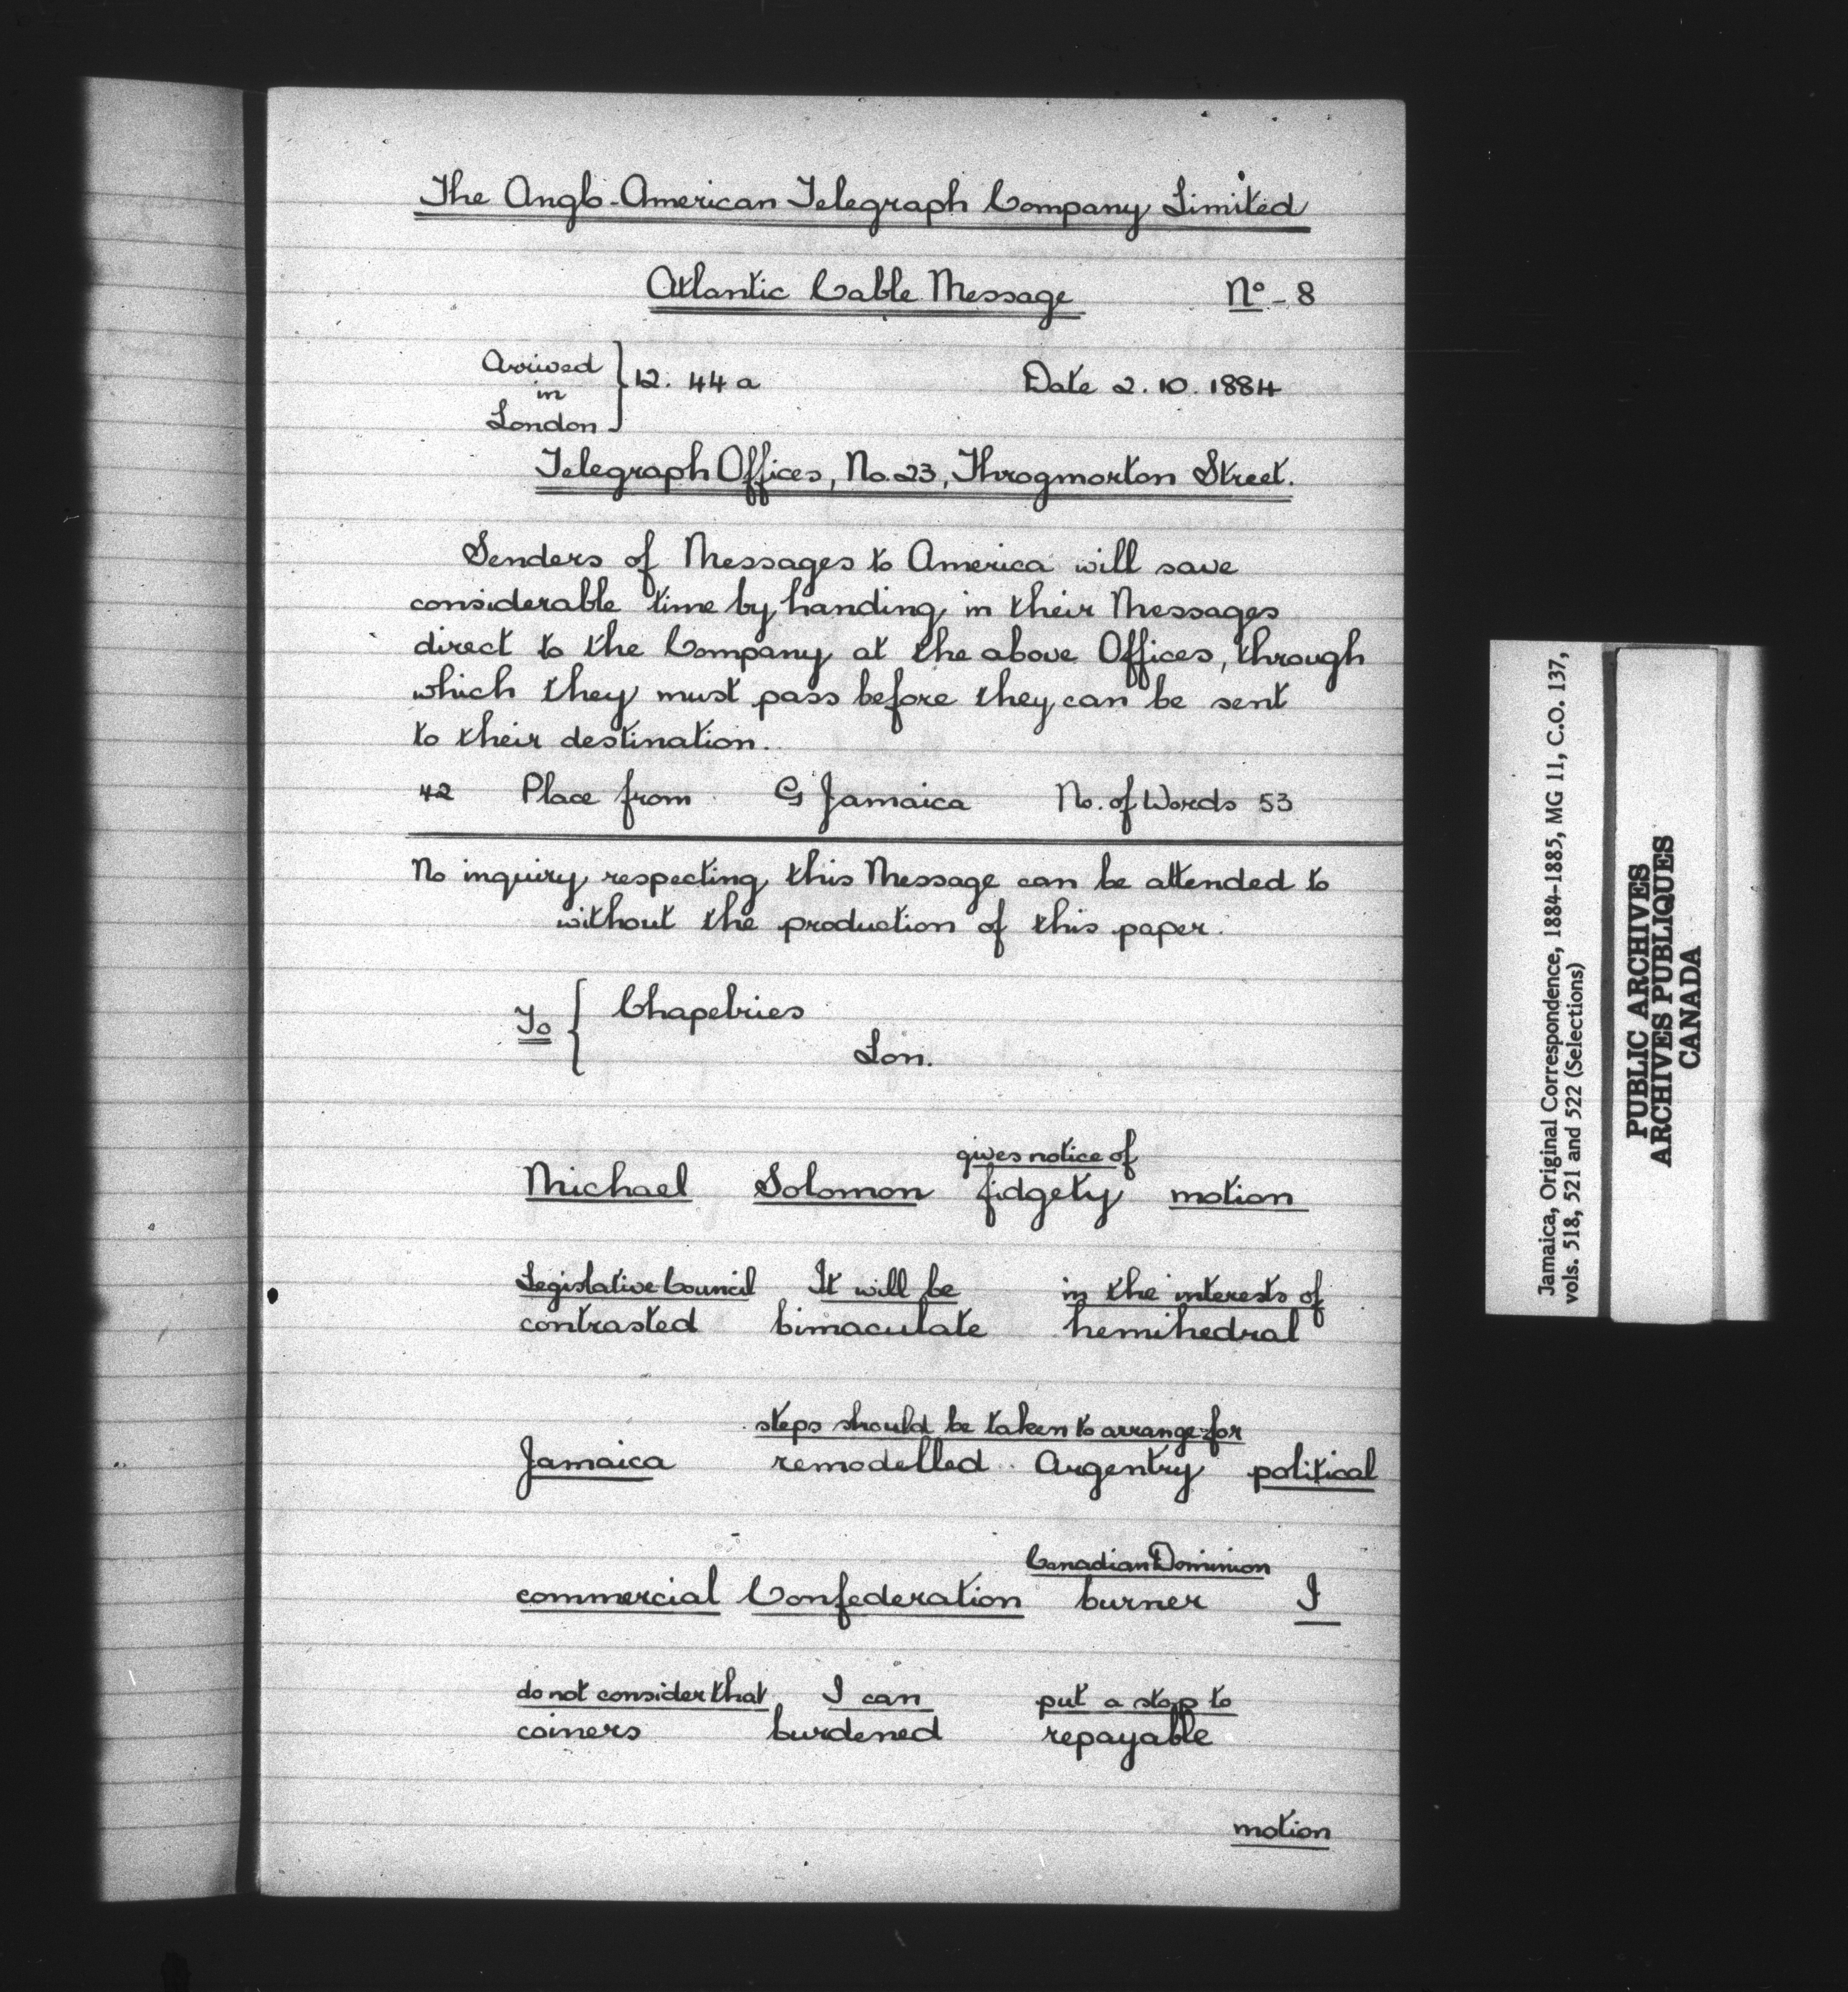 The Anglo-American Telegraph Company Limited
Atlantic Cable Message No - 8
Arrived
in
London } 12. 44 a Date 2. 10. 1884
Telegraph Offices, No. 23, Throgmorton Street.
Senders of Messages to America will save
considerable time by handing in their Messages
direct to the Company at the above Offices, through
which they must pass before they can be sent
to their destination.
42 Place from G Jamaica No. of Words 53
No inquiry respecting this Message can be attended to
without the production of this paper.
To { Chapelries
Lon.
gives notice of
Michael Solomon fidgety motion
Legislative Council It will be in the interests of
contrasted bimaculate hemihedral
steps should be taken to arrange for
Jamaica remodelled Argentry political
Canadian Dominion
commercial Confederation burner I
do not consider that I can put a stop to
coiners burdened repayable
motion
Jamaica, Original Correspondence, 1884-1885, MG 11, C.O. 137,
vols. 518, 521 and 522 (Selections)
PUBLIC ARCHIVES
ARCHIVES PUBLIQUES
CANADA